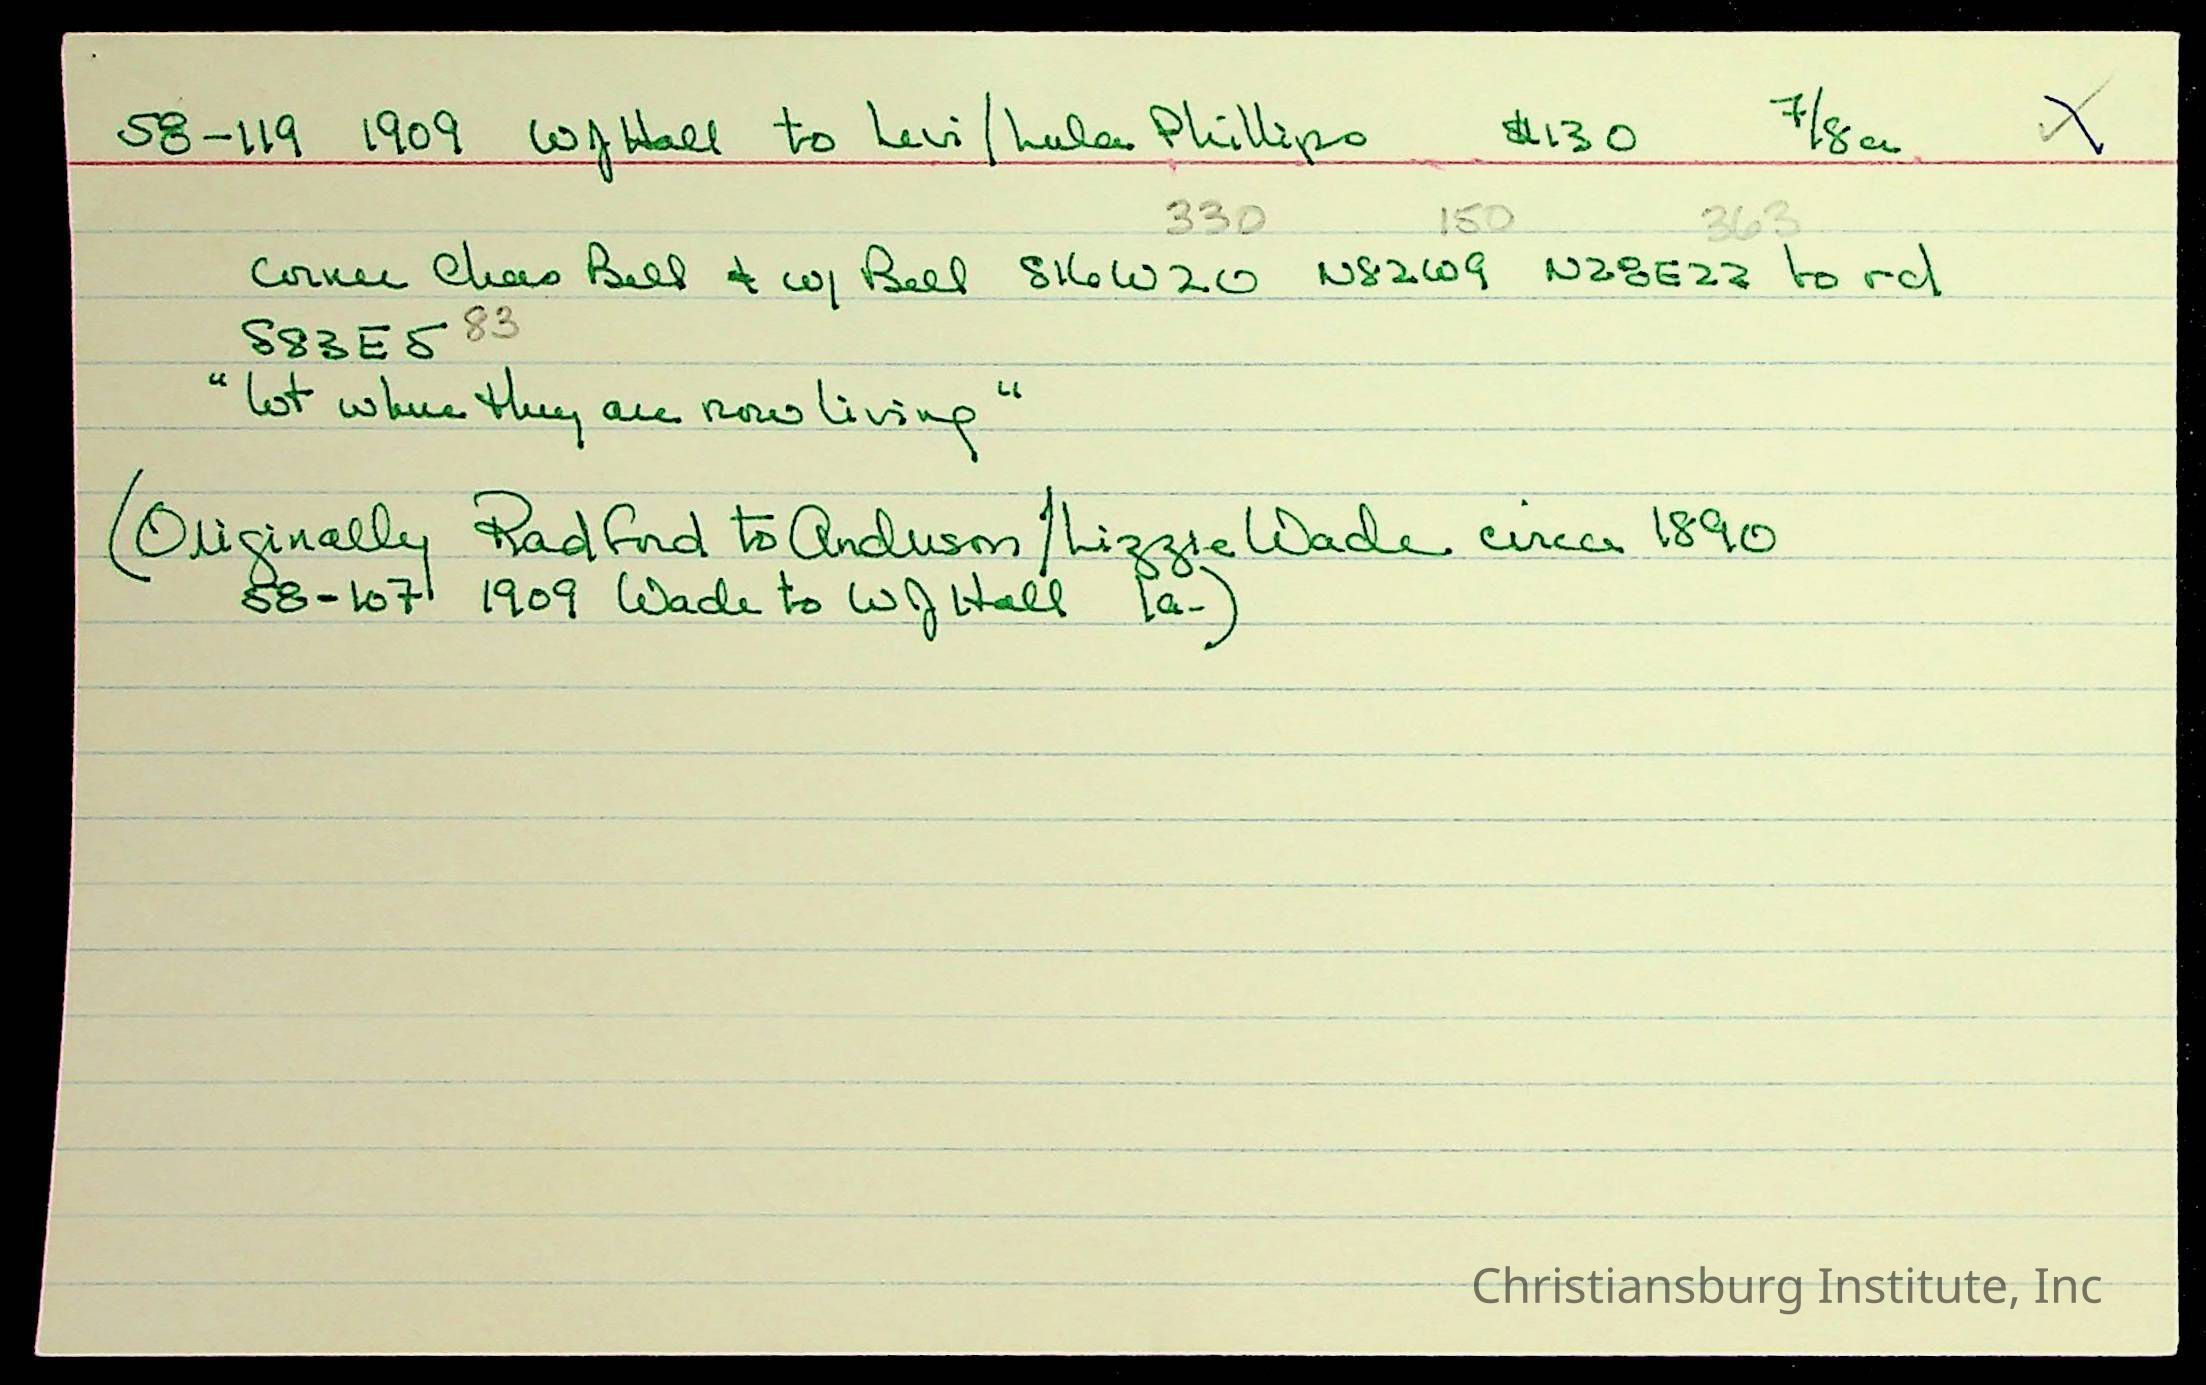 58-119 1909 WJ Hall to Levi/Lula Phillips $130 7/8a
330 150 363
corner Chas Bell & W/ Bell S16W20 N82W9 N28E22 to rd
S83E5 83
"lot where they are now living"
(Originally Radford to Anderson/Lizzie Wade circa 1890
58-107 1909 Wade to WJ Hall 1a-)
Christiansburg Institute, Inc